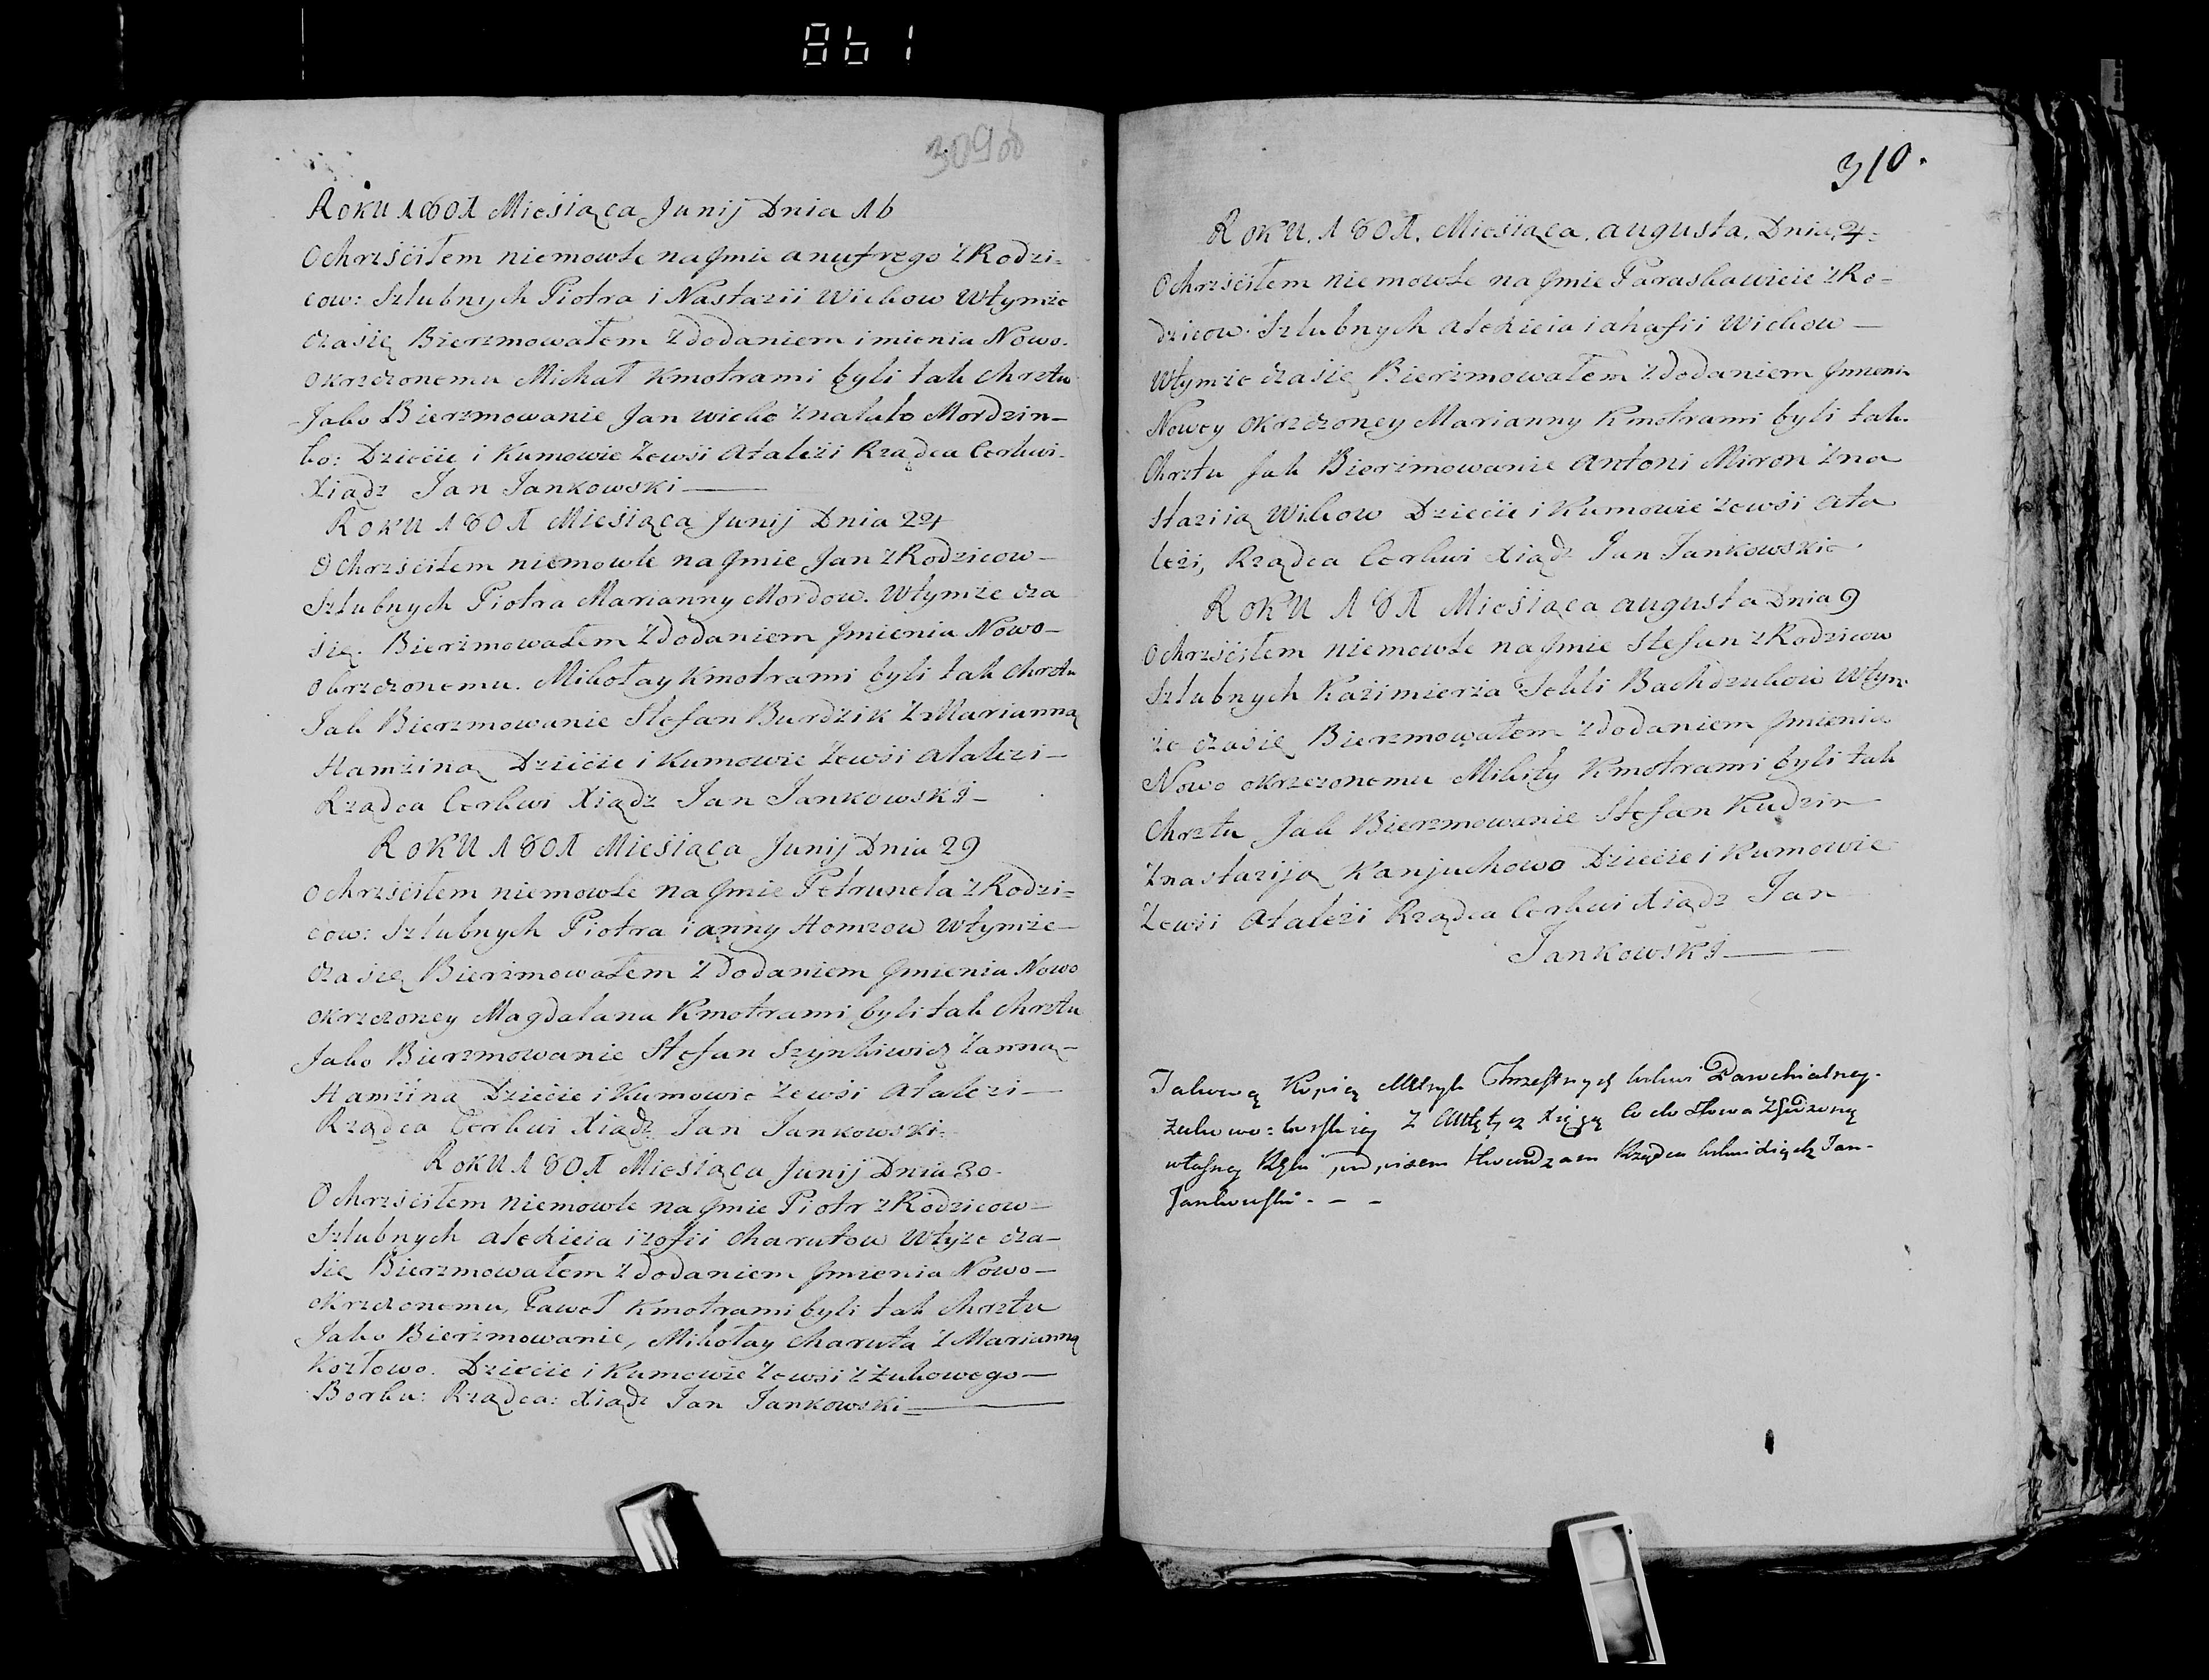 861
309об
Roku 1801 Miesiąca Junij Dnia 16
Ochrzściłem niemowle na Jmie anufrego z Rodzi=
cow: Szlubnych Piotra i Nastazii Wickow Wtymże
czasię Bierzmowałem z dodaniem imienia Nowo-
okrzczonemu Michał Kmotrami byli tak chrztu
Jako Bierzmowanie Jan wicko Mordzin-
ko: Dziecie i Kumowie zewsi Atalezi Rządca Cerkwi-
Xiądz Jan Jankowski
Roku 1801 Miesiąca Junij Dnia 24
Ochrzściłem niemowle na Jmie Jan z Rodzicow-
Szlubnych Piotra Marianny Mordow. Wtymże cza
się. Bierżmowałem z dodaniem Jmienia Nowo-
okrzczonemu. Mikołay Kmotrami byli tak chrztu
Jak Bierzmowanie Stefan Burdzik z Marianną
Hamziną Dziecie i Kumowie zewsi Atalezi-
Rządca Cerkwi Xiądz Jan Jankowski-
Roku 1801 Miesiąca Junij Dnia 29
Ochrzściłem niemowle na Jmie Petrunela z Rodzi=
cow: Szlubnych Piotra i anny Homzow Wtymże-
czasię Bierżmowałem z dodaniem Jmienia Nowo
okrzczoney Magdalana Kmotrami byli tak chrztu
Jako Bierzmowanie Stefan Szynkiwicz z anną-
Hamzina Dziecie i Kumowie zewsi Atalezi-
Rządca Cerkwi Xiądz Jan Jankowski-
Roku 1801 Miesiąca Junij Dnia 30-
Ochrzściłem niemowle na Jmie Piotr z Rodzicow-
Szlubnych alexieia i zofii charutow Wtyże cza-
się Bierzmowałem z dodaniem Jmienia Nowo-
okrzczonemu, Paweł Kmotrami byli tak chrztu
Jako Bierżmowanie, Mikołay charuta z Marianną
Kozłowo. Dziecie i Kumowie zewsi z Żukowego-
Borku: Rządca: Xiądz Jan Jankowski-
310.
Roku. 1801. Miesiąca. augusta. Dnia, 4-
Ochrzściłem niemowle na Jmie Paraskawieie z Ro-
dzicow. Szlubnych alexieia i ahafii Wickow-
Wtymże czasię Bierżmowałem z dodaniem Jmieni
Nowey okrzczoney Marianny Kmotrami byli tak.
Chrztu Jak Bierżmowanie Antoni Miron z na
staziią Wickow Dziecie i Kumowie zewsi Ata
lezi, Rządca Cerkwi Xiądz Jan Jankowskie
Roku 181 Miesiąca augusta Dnia 9
Ochrzściłem niemowle na Jmie Stefan z Rodzicow
Szlubnych Kazimierza Tekli Bachdzukow Wtym
że czasię Bierzmowałem z dodaniem Jmienia
Nowo okrzczonemu Mikity Kmotrami byli tak
Chrztu Jak Bierzmowanie Stefan Kudzin
z nastaziją Kanjuchowo Dziecie i Kumowie
Zewsi Atalezi Rządca Cerkwi Xiądz Jan
Jankowski
Takową Kopią Metryk Chrzestnych Parochialney-
z Xięgą Co do Słowa Zgodzoną
własney Ręki podpisem Stwierdzam Rządca Jan-
Jankowski - - -